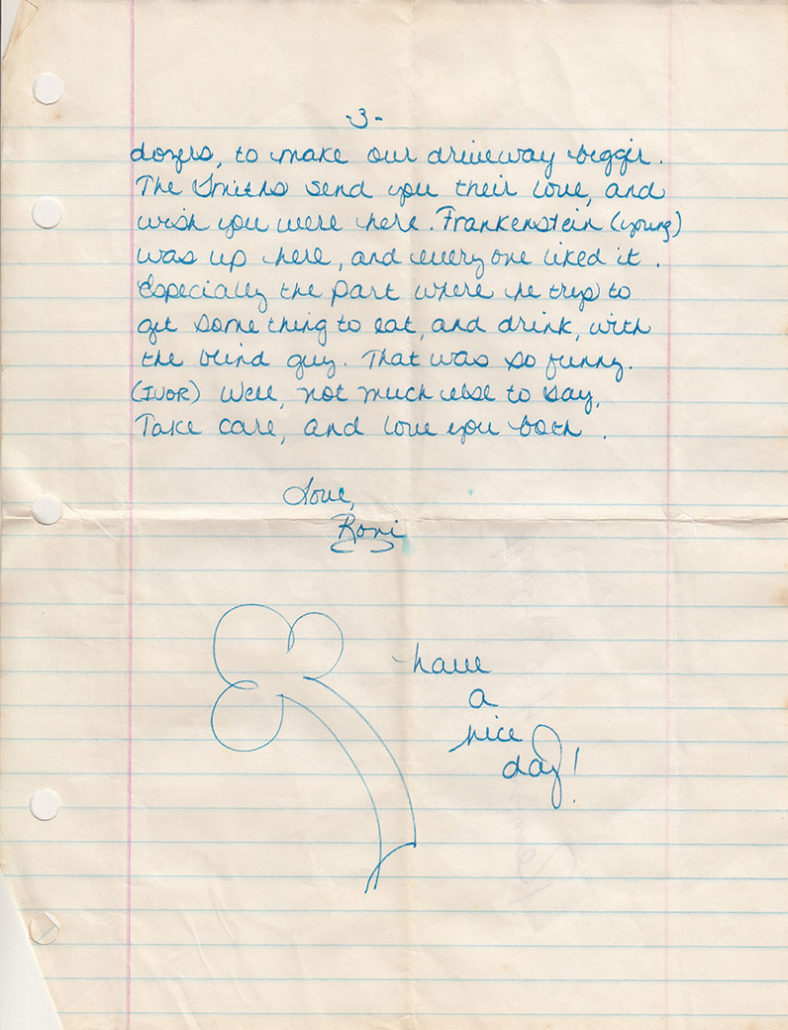 -3-
dozers, to make our driveway bigger.
The Smiths send you their love, and
wish you were here. Frankenstein (young)
was up here, and everyone liked it.
Especially the part where he trys to
get something to eat, and drink, with
the blind guy. That was so funny.
(IVOR) Well, not much else to say,
Take care, and love you both.
Love,
Roni
have
a
nice
day!